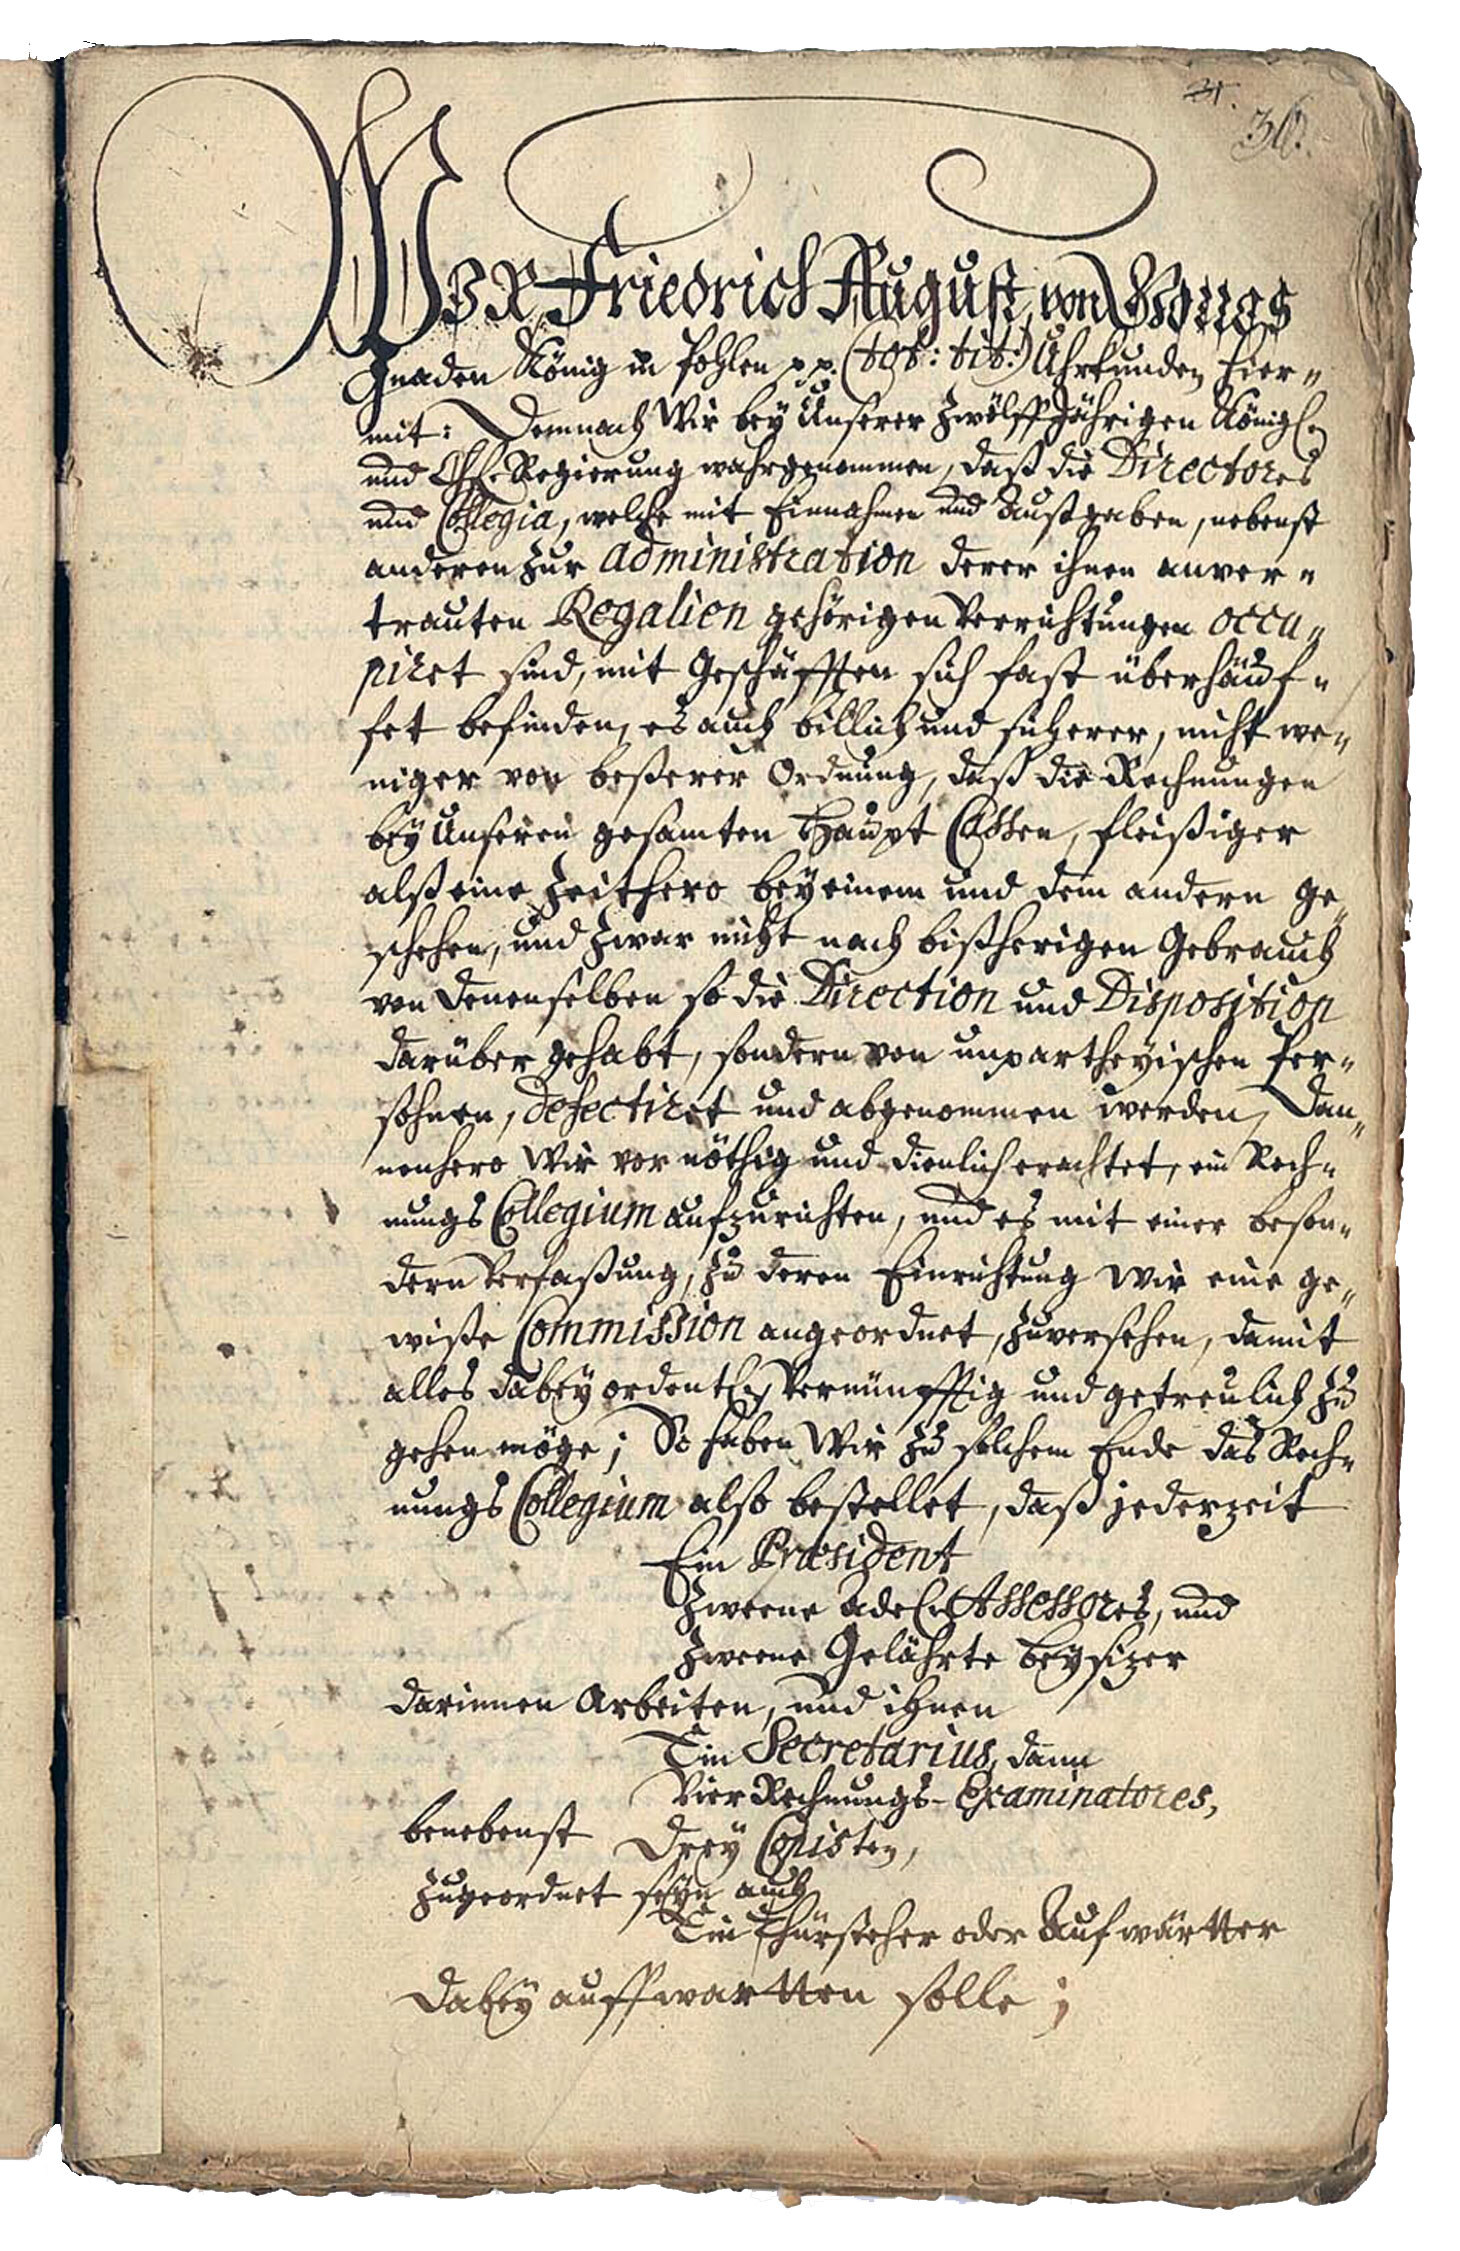 31.
36.
Wir Friedrich August, von Gottes
Gnaden König in Pohlen pp. (tot: tit:) Uhrkunden hier„
mit: Demnach Wir bey Unserer Zwölff Jährigen Königl.
und Regierung wahrgenommen, daß die Directores
und Collegia, welche mit Einnahmen und Außgaben, nebenst
anderen zur administration derer ihnen anver„
trauten Regalien gehörigen Verrichtungen occu„
piret sind, mit Geschäfften sich fast überhäuf„
fet befinden, es auch billich und sicherer, nicht we„
niger von beßerer Ordnung, daß die Rechnungen
bey Unseren gesamten Haupt Cassen, fleißiger
alß eine Zeithero bey einem und dem andern ge„
schehen, und zwar nicht nach bißherigen Gebrauch
von denenselben so die Direction und Disposition
darüber gehabt, sondern von unpartheyischen Per„
sohnen, defectiret und abgenommen werden, Dan„
nenhero Wir vor nöthig und dienlich erachtet, ein Rech„
nungs Collegium aufzurichten, und es mit einer beson„
dern Verfaßung, zu deren Einrichtung Wir eine ge„
wiße Commission angeordnet, zuversehen, damit
alles dabey ordentl. Vernünfftig und getreulich zu
gehen möge; So haben Wir zu solchem Ende das Rech„
nungs Collegium also bestellet, daß jederzeit
Ein Præsident
Zweene Adel. Assessores, und
Zweene Gelährte Beysizer
darinnen Arbeiten, und ihnen
Ein Secretarius, dann
Vier Rechnungs-Examinatores,
benebenst Drey Copisten,
zugeordnet seyn auch
Ein Thürsteher oder Aufwärtter
dabey auffwartten solle;